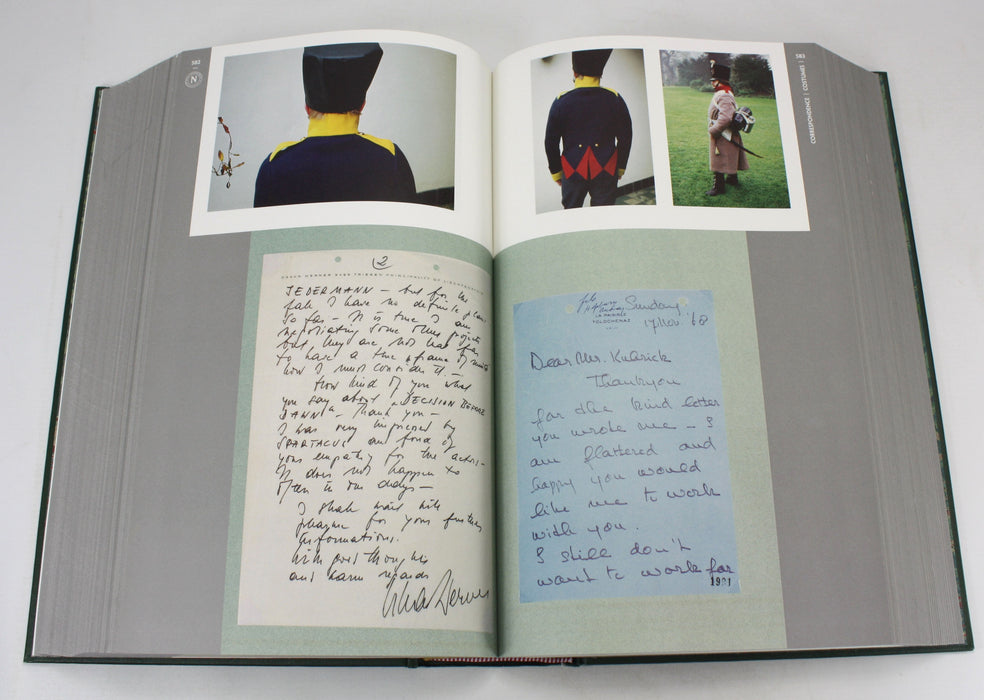 582
N
2
JEDERMANN – but for the
fall I have no definite plans
so far – It is true I am
negotiating some other projects
but they are not that far
to have a time frame of
now I must consider it –
How kind of you what
you say about „DECISION BEFORE
DAWN“ – Thank you –
I was very impressed by
SPARTACUS and fond of
your empathy for the actors –
It does not happen to
often in our days –
I shall wait with
pleasure for your further
informations.
With good thoughts
and warm regards
583
CORRESPONDENCE | COSTUMES |
LA PAISIBLE
TOLOCHENAZ
Sunday
17 Nov. '68
Dear Mr. Kubrick
Thankyou
for the kind letter
you wrote me – I
am flattered and
happy you would
like me to work
with you.
I still don't
want to work for
1991